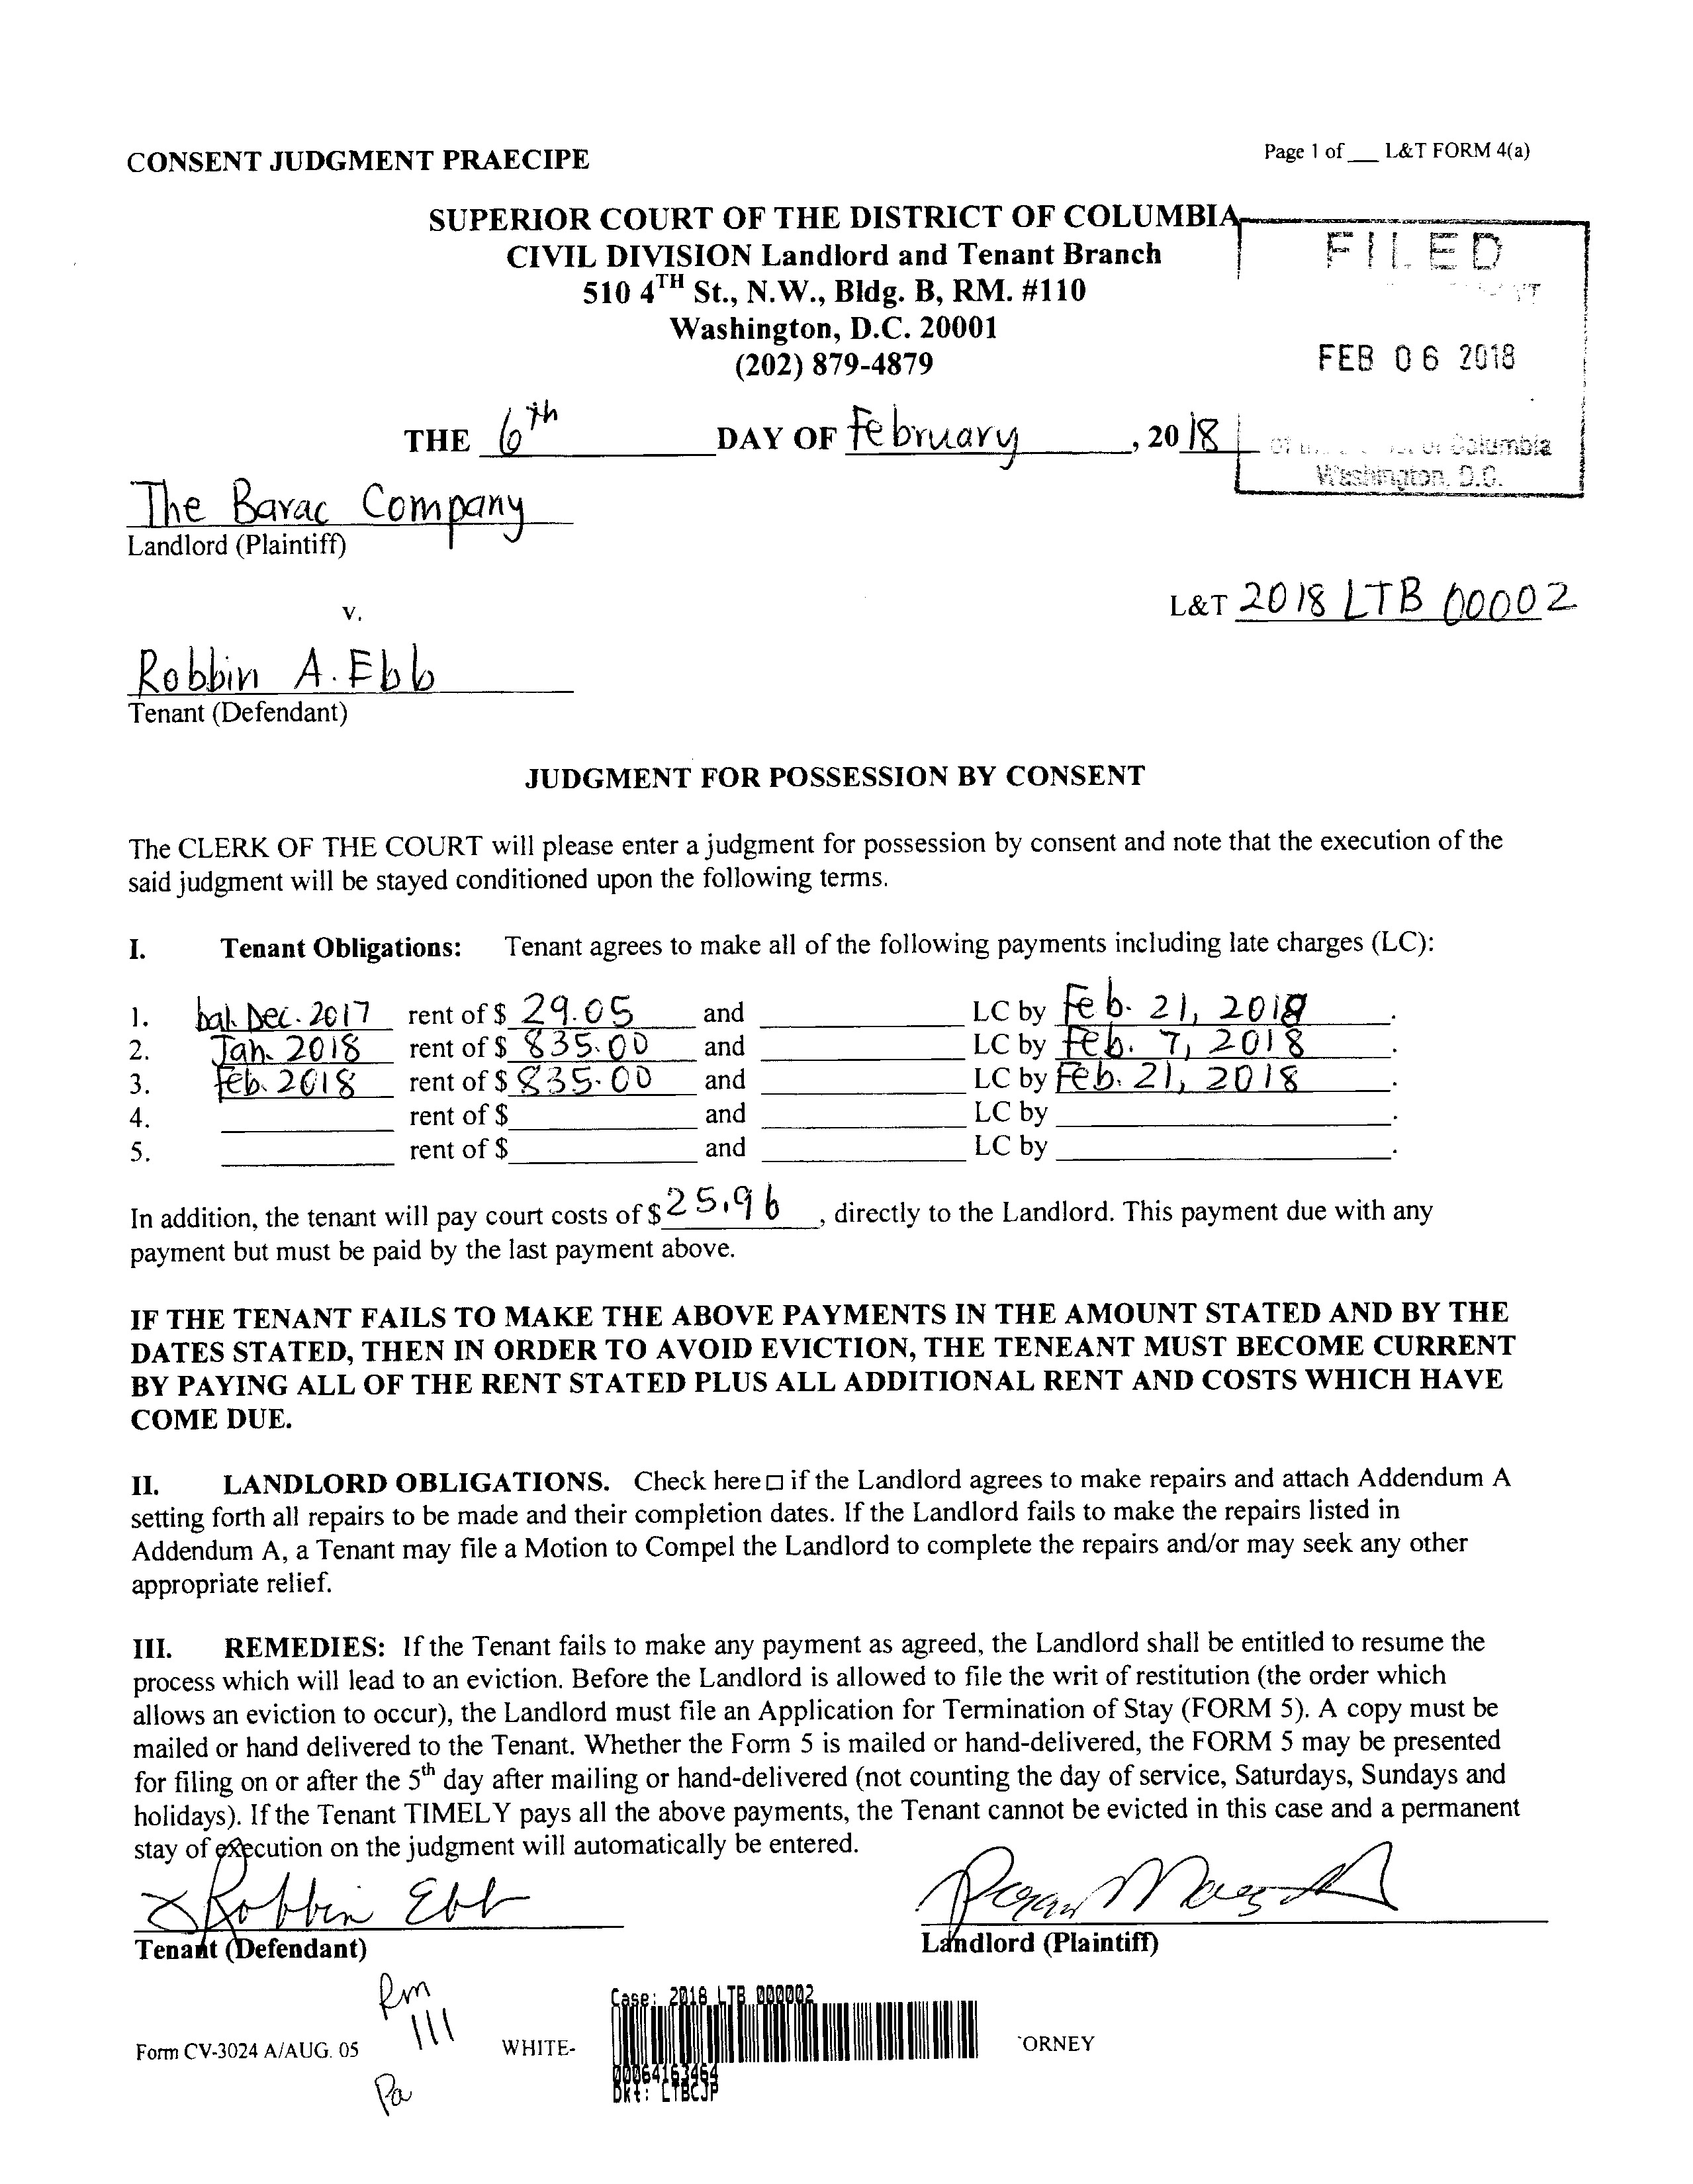 CONSENT JUDGMENT PRAECIPE
Page 1 of __ L&T FORM 4(a)
SUPERIOR COURT OF THE DISTRICT OF COLUMBIA
CIVIL DIVISION Landlord and Tenant Branch
510 4TH St., N.W., Bldg. B, RM. #110
Washington, D.C. 20001
(202) 879-4879
FILED
FEB 06 2018
Columbia
Washington, D.C.
THE 6th DAY OF February, 2018
The Barac Company
Landlord (Plaintiff)
L&T 2018 LTB 00002
v.
Robbin A. Ebb
Tenant (Defendant)
JUDGMENT FOR POSSESSION BY CONSENT
The CLERK OF THE COURT will please enter a judgment for possession by consent and note that the execution of the
said judgment will be stayed conditioned upon the following terms.
I. Tenant Obligations: Tenant agrees to make all of the following payments including late charges (LC):
1. bal. Dec. 2017 rent of $ 29.05 and ____ LC by Feb. 21, 2018.
2. Jan. 2018 rent of $ 835.00 and ____ LC by Feb. 7, 2018.
3. Feb. 2018 rent of $ 835.00 and ____ LC by Feb. 21, 2018.
4. ____ rent of $ ____ and ____ LC by ____.
5. ____ rent of $ ____ and ____ LC by ____.
In addition, the tenant will pay court costs of $ 25.96, directly to the Landlord. This payment due with any
payment but must be paid by the last payment above.
IF THE TENANT FAILS TO MAKE THE ABOVE PAYMENTS IN THE AMOUNT STATED AND BY THE
DATES STATED, THEN IN ORDER TO AVOID EVICTION, THE TENEANT MUST BECOME CURRENT
BY PAYING ALL OF THE RENT STATED PLUS ALL ADDITIONAL RENT AND COSTS WHICH HAVE
COME DUE.
II. LANDLORD OBLIGATIONS. Check here □ if the Landlord agrees to make repairs and attach Addendum A
setting forth all repairs to be made and their completion dates. If the Landlord fails to make the repairs listed in
Addendum A, a Tenant may file a Motion to Compel the Landlord to complete the repairs and/or may seek any other
appropriate relief.
III. REMEDIES: If the Tenant fails to make any payment as agreed, the Landlord shall be entitled to resume the
process which will lead to an eviction. Before the Landlord is allowed to file the writ of restitution (the order which
allows an eviction to occur), the Landlord must file an Application for Termination of Stay (FORM 5). A copy must be
mailed or hand delivered to the Tenant. Whether the Form 5 is mailed or hand-delivered, the FORM 5 may be presented
for filing on or after the 5th day after mailing or hand-delivered (not counting the day of service, Saturdays, Sundays and
holidays). If the Tenant TIMELY pays all the above payments, the Tenant cannot be evicted in this case and a permanent
stay of execution on the judgment will automatically be entered.
x Robbin Ebb
Tenant (Defendant)
Landlord (Plaintiff)
Rm
111
Case: 2018 LTB 000002
Form CV-3024 A/AUG. 05
WHITE-
ORNEY
00064163464
Dkt: LTBCJP
Pa